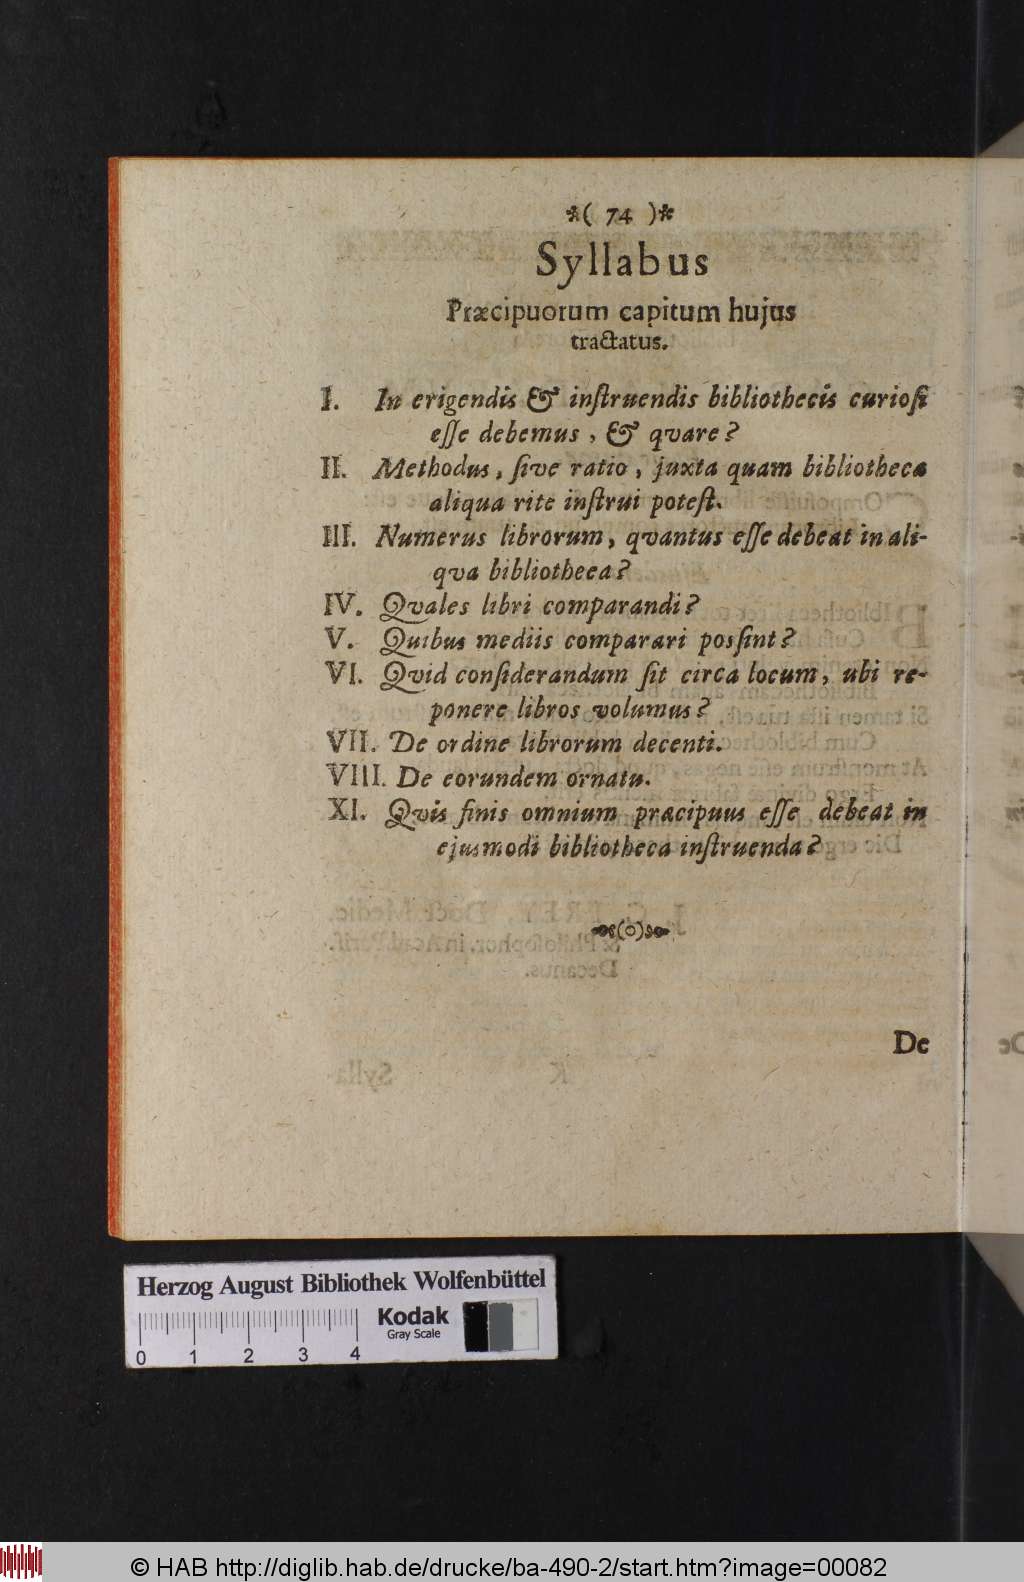 *( 74 )*
Syllabus
Præcipuorum capitum hujus
tractatus.
I. In erigendis & inſtruendis bibliothecis curioſi
eſſe debemus, & qvare?
II. Methodus, ſive ratio, juxta quam bibliotheca
aliqua rite inſtrui poteſt.
III. Numerus librorum, qvantus eſſe debeat in ali-
qva bibliotheca?
IV. Qvales libri comparandi?
V. Quibus mediis comparari posſint?
VI. Qvid conſiderandum ſit circa locum, ubi re-
ponere libros volumus?
VII. De ordine librorum decenti.
VIII. De eorundem ornatu.
XI. Qvis finis omnium præcipuus eſſe debeat in
ejusmodi bibliotheca inſtruenda?
(o)
De
Herzog August Bibliothek Wolfenbüttel
Kodak
Gray Scale
0 1 2 3 4
© HAB http://diglib.hab.de/drucke/ba-490-2/start.htm?image=00082